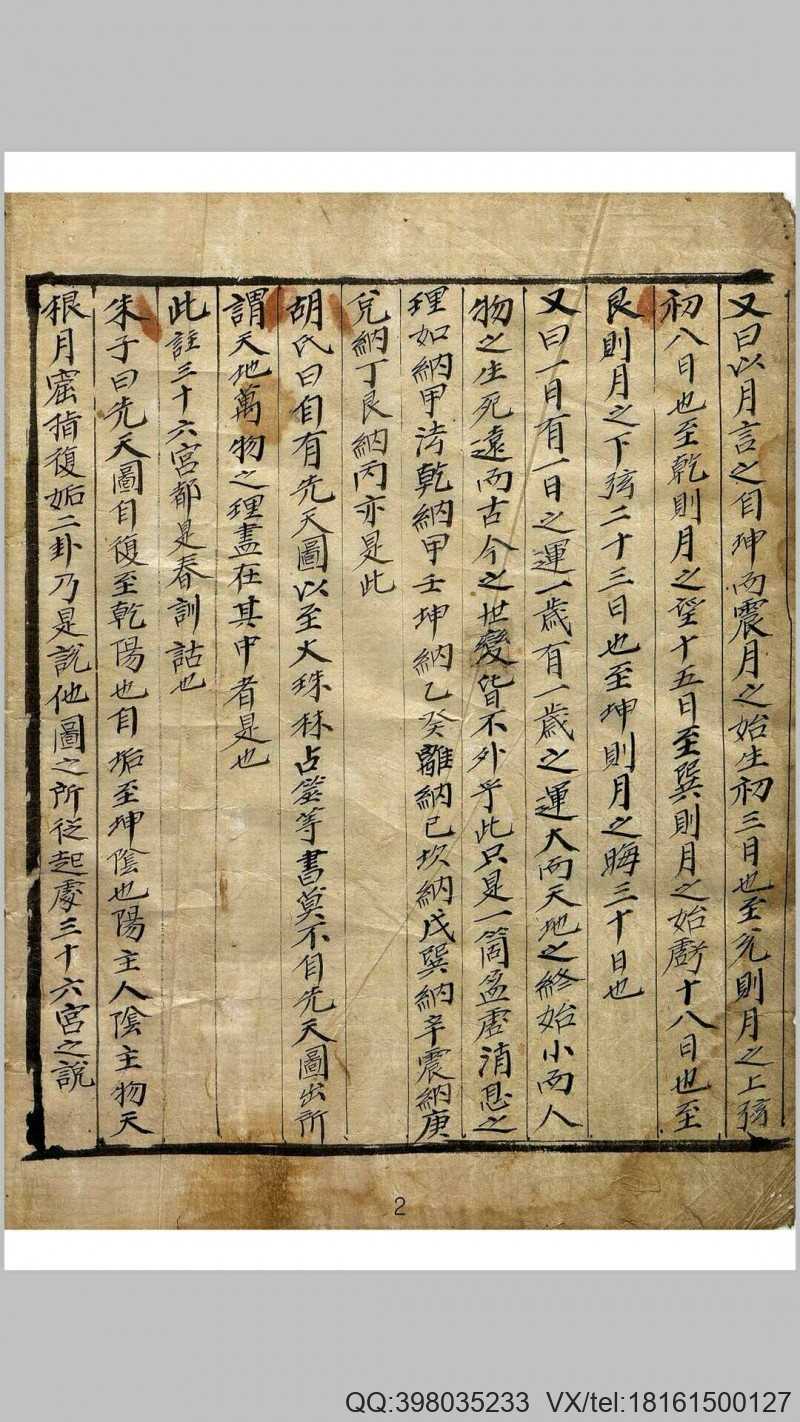 又曰以月言之自坤而震月之始生初三日也至兊則月之上弦
初八日也至乾則月之望十五日至巽則月之始虧十八日也至
艮則月之下弦二十三日也至坤則月之晦三十日也
又曰一日有一日之運一歲有一歲之運大而天地之終始小而人
物之生死遠而古今之世變皆不外乎此只是一箇盈虛消息之
理如納甲法乾納甲壬坤納乙癸離納己坎納戊巽納辛震納庚
兌納丁艮納丙亦是此
胡氏曰自有先天圖以至火珠林占筮等書莫不自先天圖出所
謂天地萬物之理盡在其中者是也
此註三十六宮都是春訓詁也
朱子曰先天圖自復至乾陽也自垢至坤陰也陽主人陰主物天
根月窟指復姤二卦乃是說他圖之所從起處三十六宮之說
2
QQ:398035233 VX/tel:18161500127